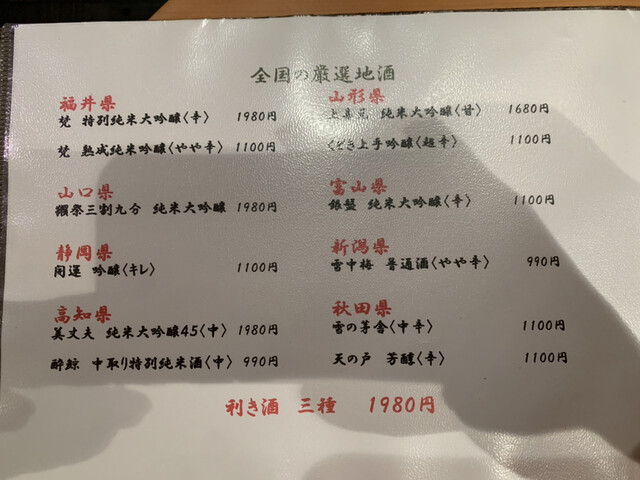 全国の厳選地酒
福井県
梵 特別純米大吟醸〈辛〉 1980円
梵 熟成純米吟醸〈やや辛〉 1100円
山口県
獺祭三割九分 純米大吟醸 1980円
静岡県
開運 吟醸〈キレ〉 1100円
高知県
美丈夫 純米大吟醸45〈中〉 1980円
酔鯨 中取り特別純米酒〈中〉 990円
山形県
上喜元 純米大吟醸〈甘〉 1680円
くどき上手吟醸〈超辛〉 1100円
富山県
銀盤 純米大吟醸〈辛〉 1100円
新潟県
雪中梅 普通酒〈やや辛〉 990円
秋田県
雪の茅舎〈中辛〉 1100円
天の戸 芳醇〈辛〉 1100円
利き酒 三種 1980円